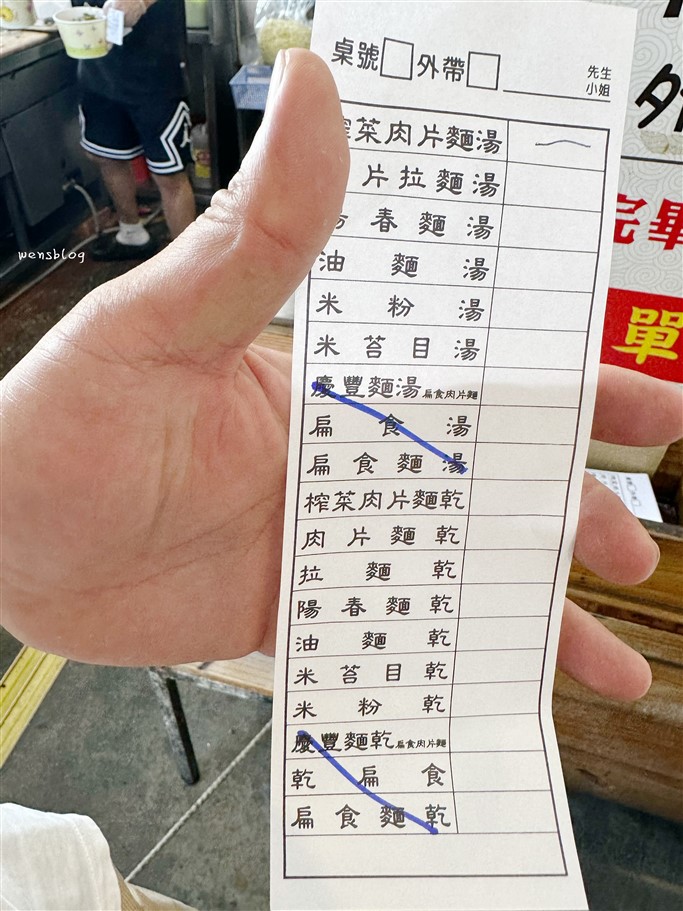 桌號 外帶 先生
小姐
榨菜肉片麵湯 一
片拉麵湯
春麵湯
油麵湯
米粉湯
米苔目湯
慶豐麵湯 扁食肉片麵
扁食湯
扁食麵湯
榨菜肉片麵乾
肉片麵乾
拉麵乾
陽春麵乾
油麵乾
米苔目乾
米粉乾
慶豐麵乾 扁食肉片麵
乾扁食
扁食麵乾
wensblog
外
完畢
單